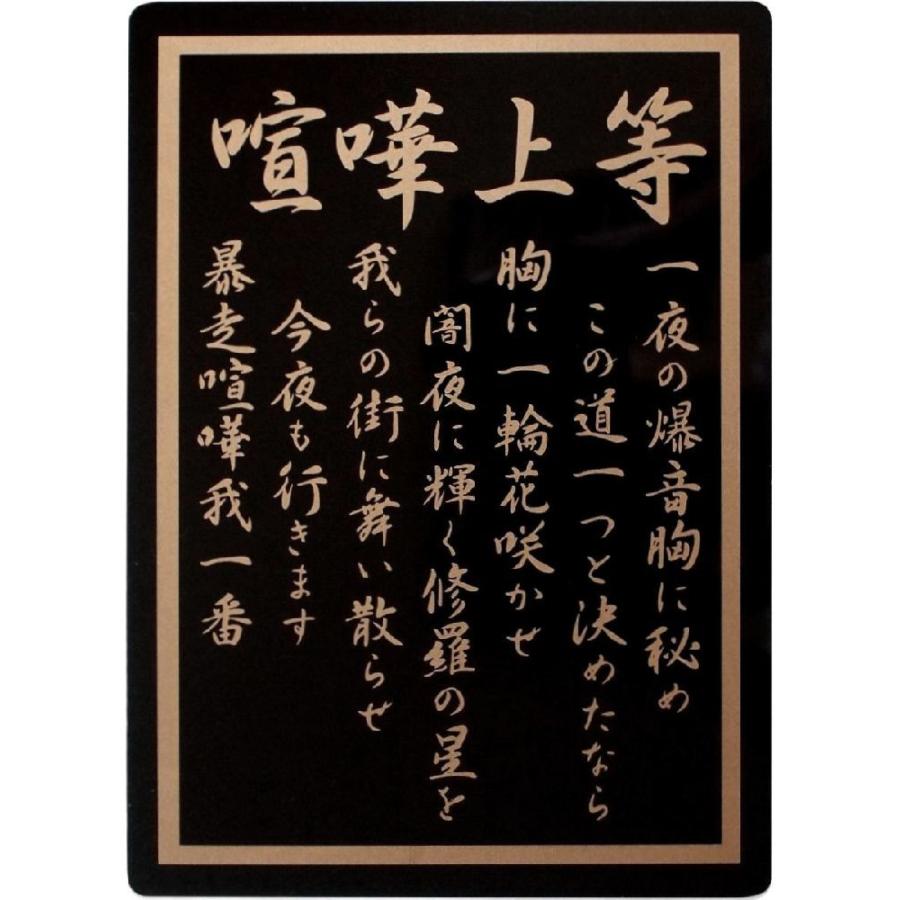 喧嘩上等
一夜の爆音胸に秘め
この道一つと決めたなら
胸に一輪花咲かせ
闇夜に輝く修羅の星を
我らの街に舞い散らせ
今夜も行きます
暴走喧嘩我一番